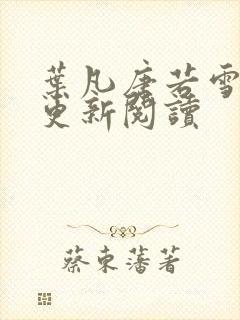 葉凡唐若雪
更新閱讀
蔡東藩著